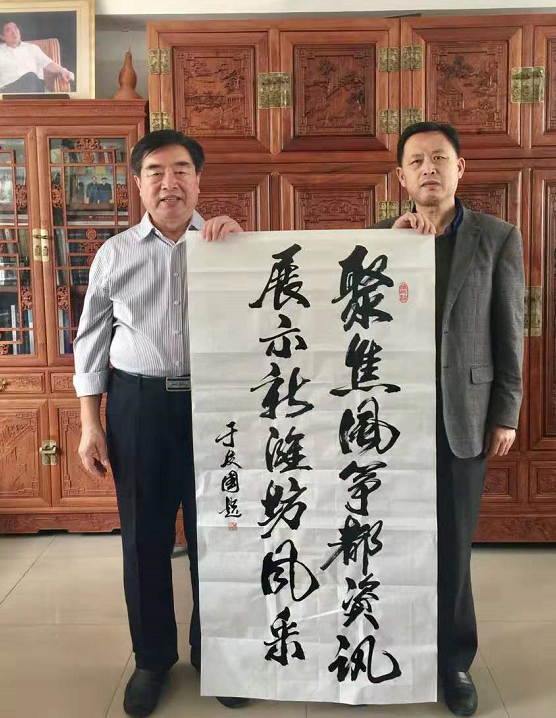 聚焦風筝都资讯
展示新潍坊风采
于友國题